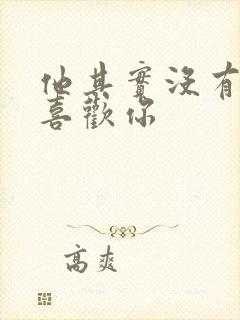 他其實沒有
喜歡你
高爽